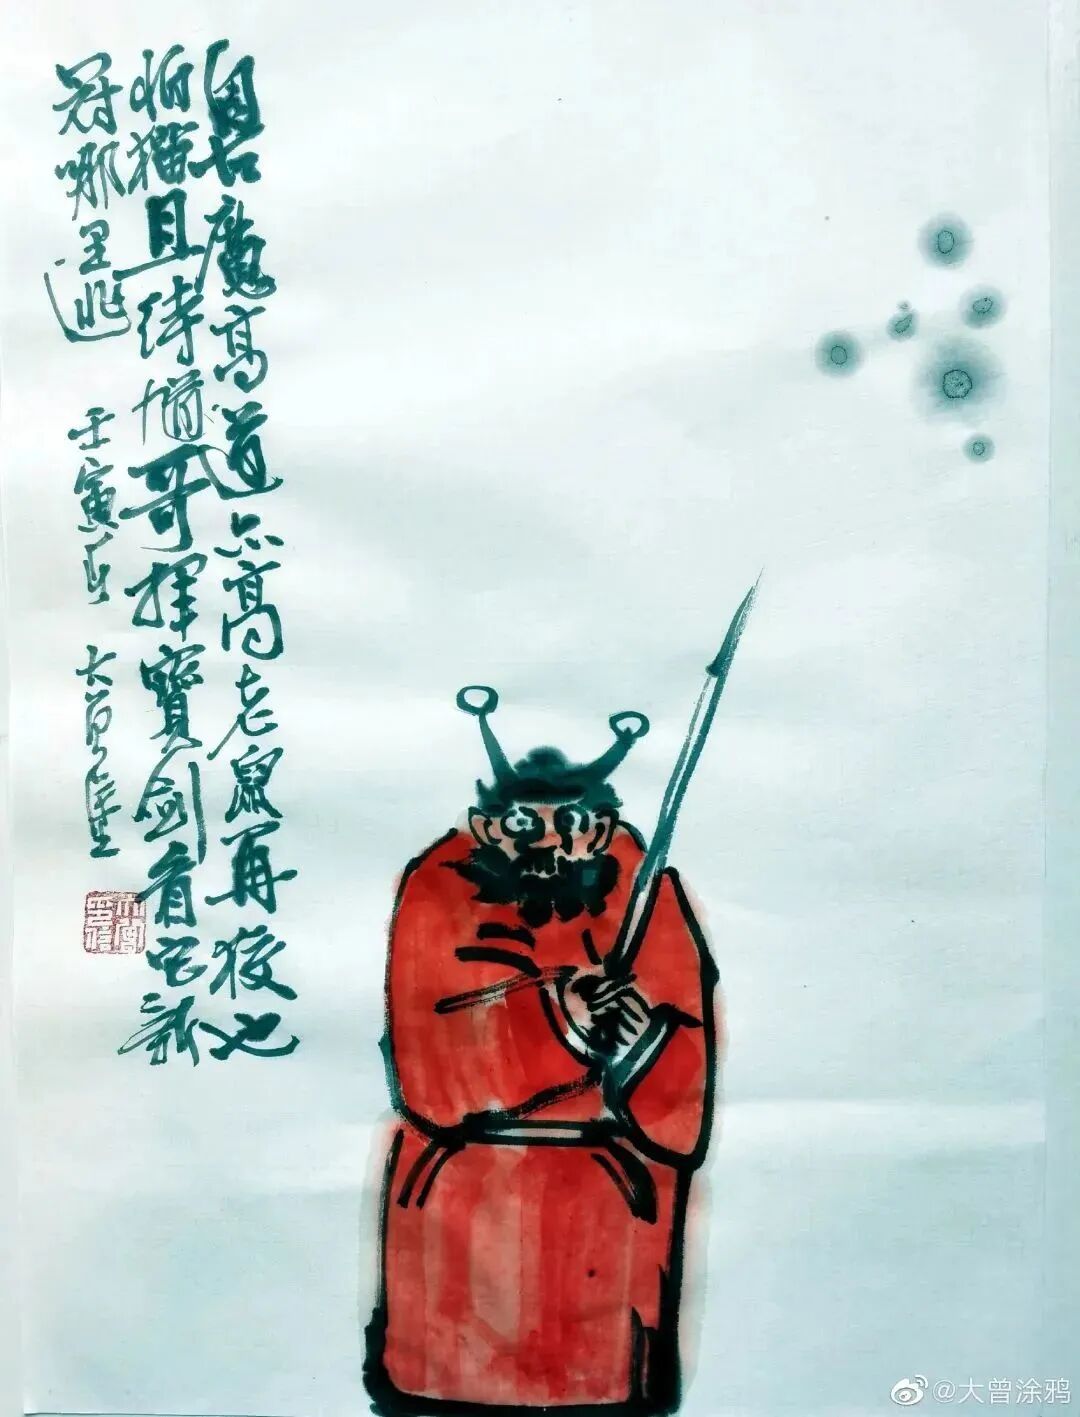 自古魔高道亦高老鼠再狡也
怕猫且待馗哥挥寶剑看它新
冠哪里逃
壬寅春 大曾
@大曾涂鸦